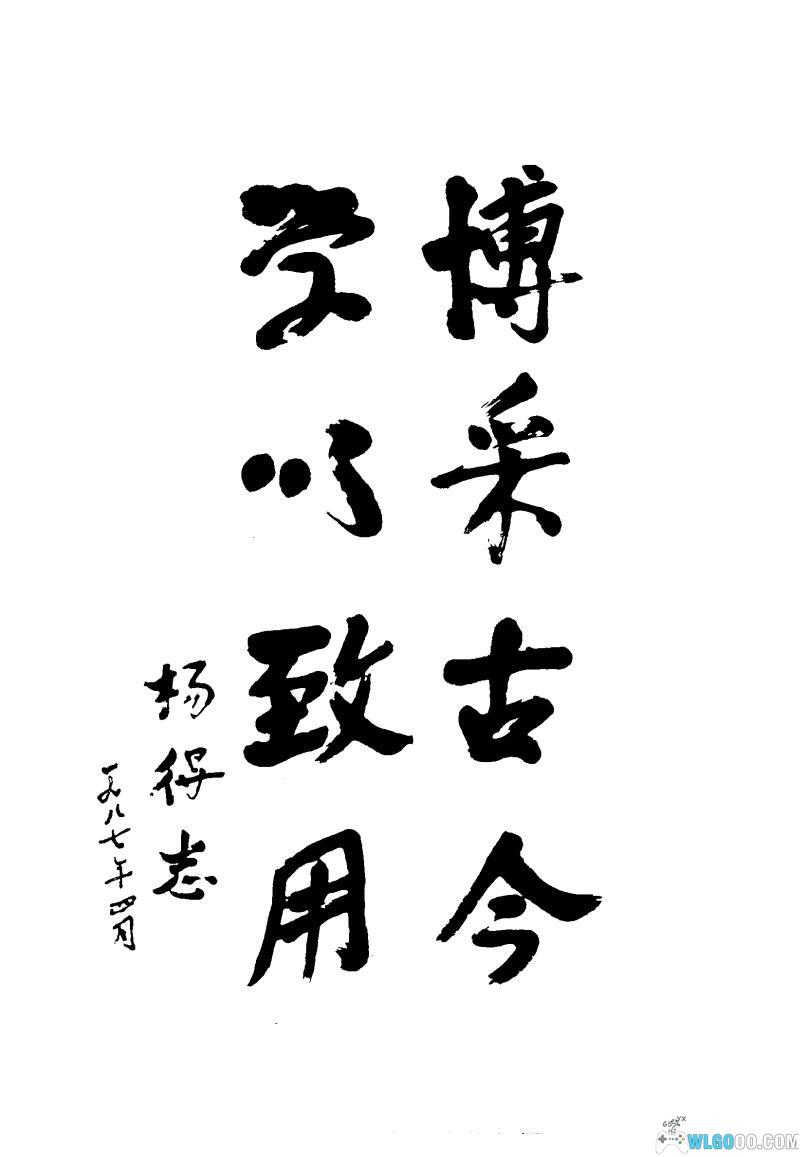 博采古今
学以致用
杨得志
一九八七年四月
WLGOOO.COM